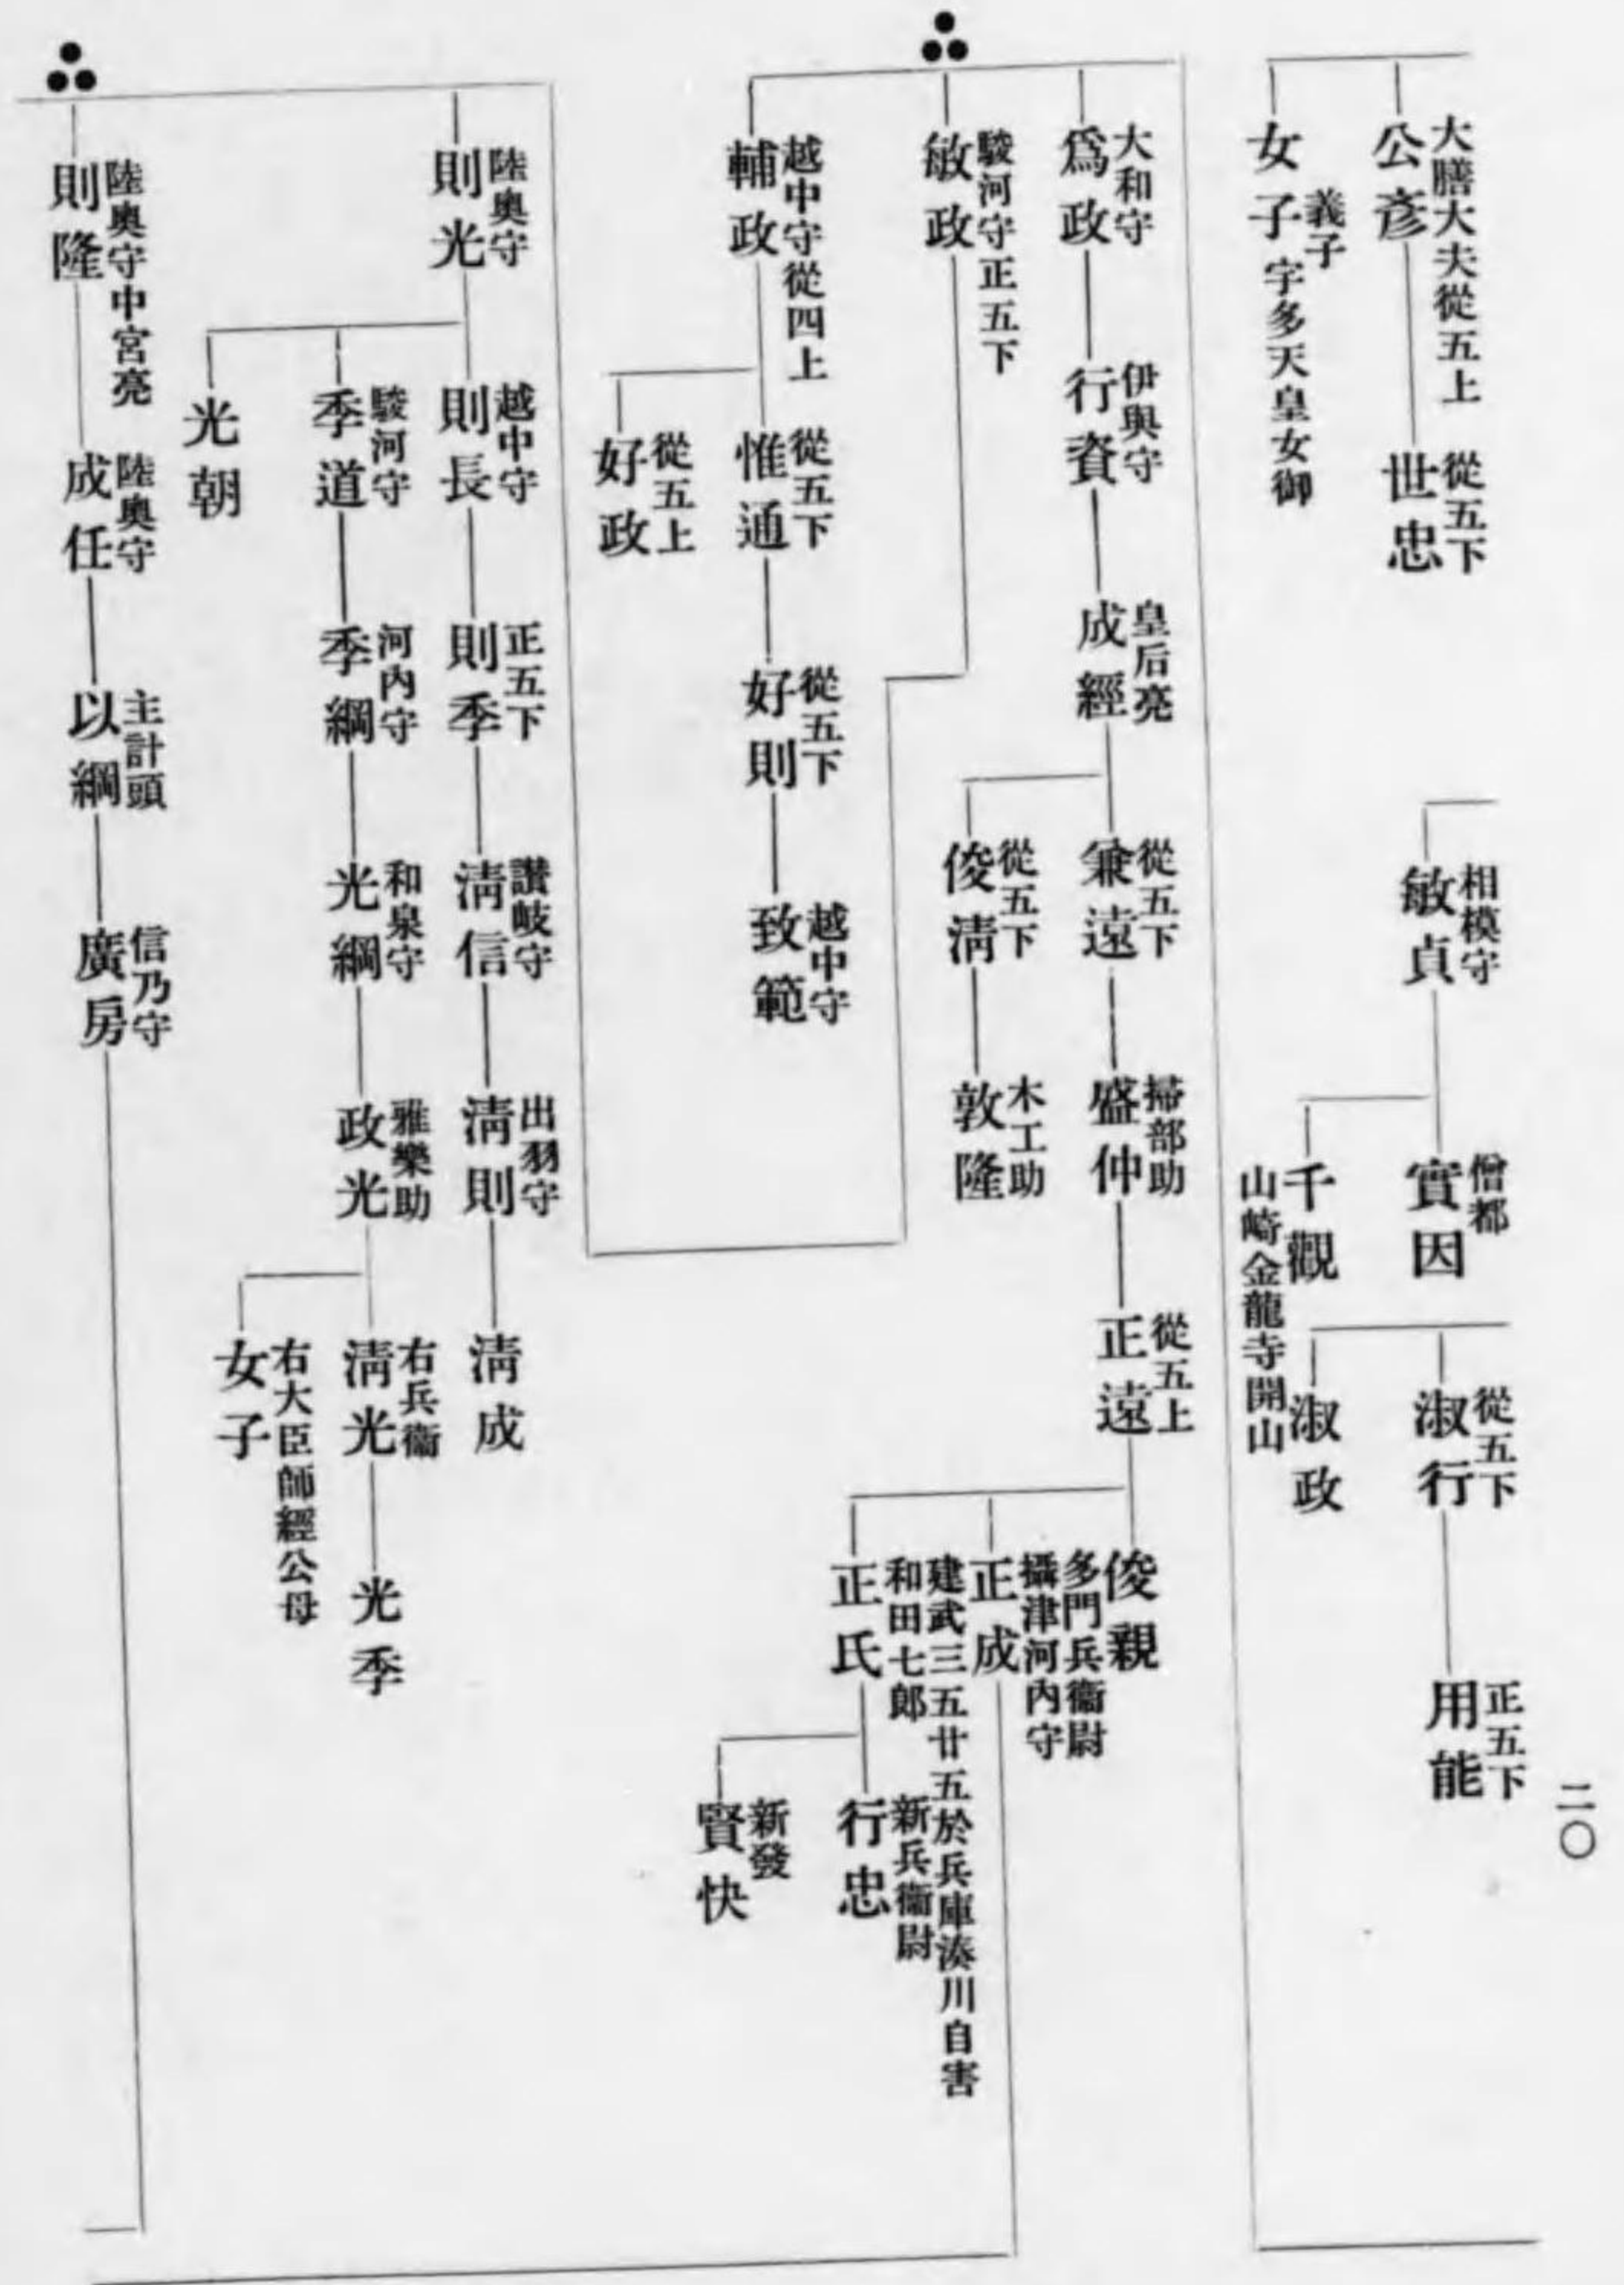 二〇
大膳大夫從五上
公彥
從五下
世忠
女子
義子
宇多天皇女御
相模守
敏貞
僧都
實因
千觀
山崎金龍寺開山
從五下
淑行
正五下
用能
淑政
大和守
爲政
伊與守
行資
皇后亮
成經
從五下
兼遠
掃部助
盛仲
從五上
正遠
俊親
多門兵衞尉
攝津河內守
正成
建武三五廿五於兵庫湊川自害
和田七郎
正氏
新兵衞尉
行忠
新發
賢快
從五下
俊淸
木工助
敦隆
駿河守正五下
敏政
越中守從四上
輔政
從五下
惟通
從五下
好則
越中守
致範
從五上
好政
陸奧守
則光
越中守
則長
正五下
則季
讃岐守
淸信
出羽守
淸則
淸成
駿河守
季道
河內守
季綱
和泉守
光綱
雅樂助
政光
右兵衞
淸光
光季
右大臣師經公母
女子
光朝
陸奧守中宮亮
則隆
陸奧守
成任
主計頭
以綱
信乃守
廣房